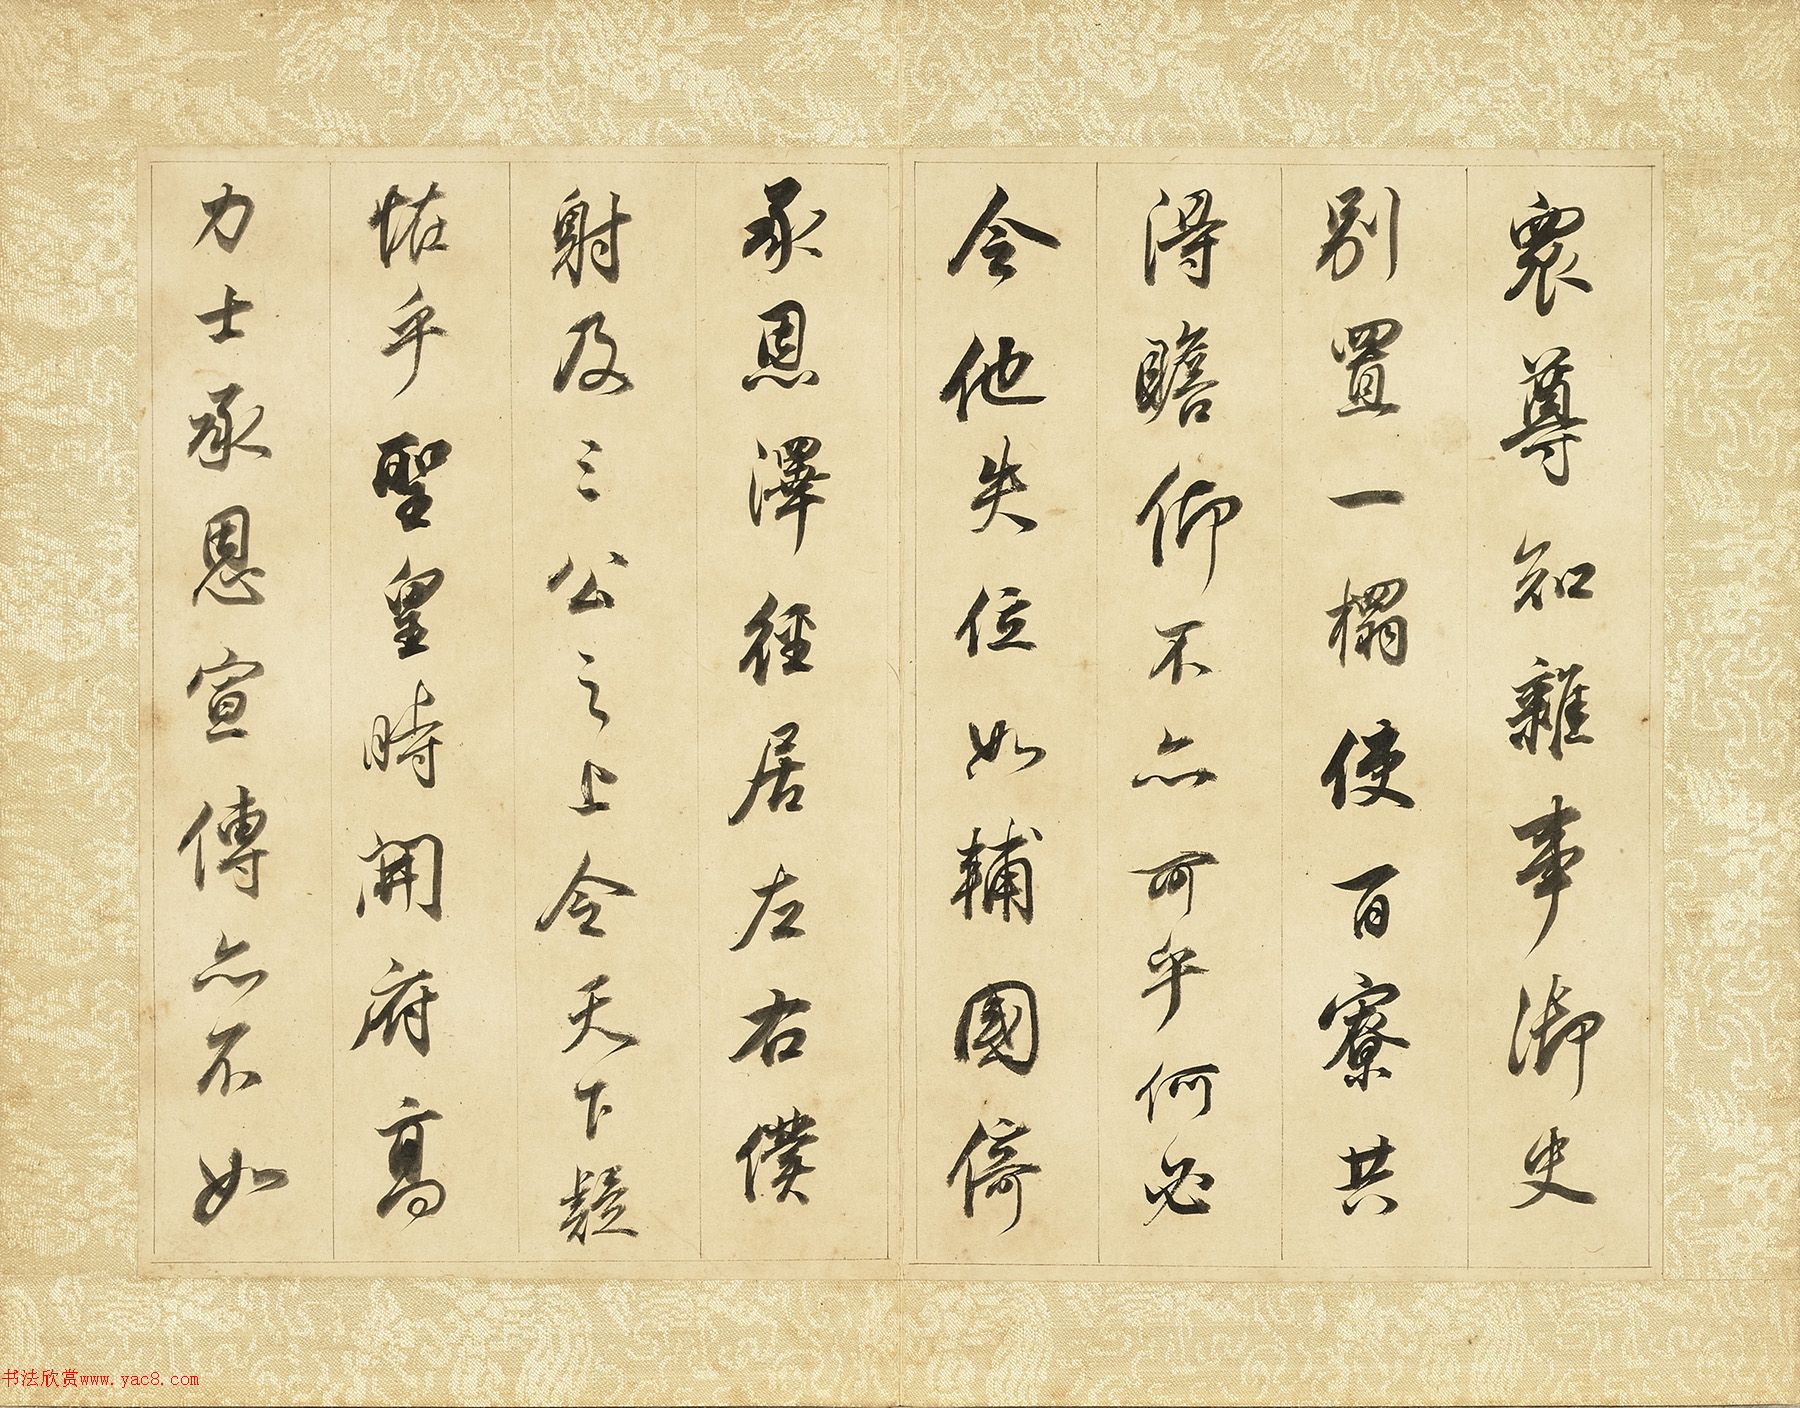 眾尊知雜事御史
別置一榻使百寮共
得瞻仰不亦可乎何必
令他失位如輔國倚
承恩澤徑居左右僕
射及三公之上令天下疑
怪乎聖皇時開府高
力士承恩宣傳亦不如
书法欣赏www.yac8.com